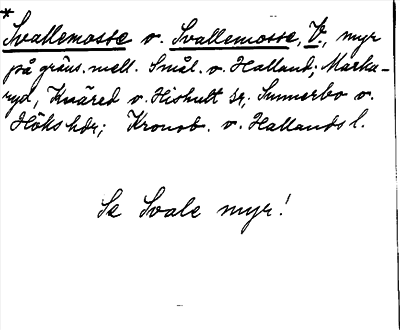 *
Svallemosse o. Svallemosse, V., myr
på gräns. mell. Smål. o. Halland; Marka-
ryd, Knäred o. Hishult sr; Sunnerbo o.
Höks hdr; Kronob. o. Hallands l.
Se Svale myr!